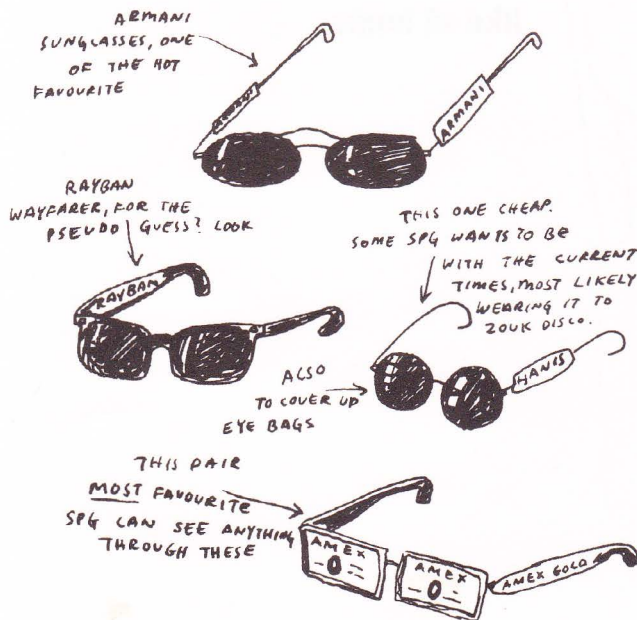 ARMANI
SUNGLASSES, ONE
OF THE HOT
FAVOURITE
ARMANI
ARMANI
RAYBAN
WAYFARER, FOR THE
PSEUDO GUESS? LOOK
RAYBAN
THIS ONE CHEAP.
SOME SPG WANTS TO BE
WITH THE CURRENT
TIMES, MOST LIKELY
WEARING IT TO
ZOUK DISCO.
ALSO
TO COVER UP
EYE BAGS
THIS PAIR
MOST FAVOURITE
SPG CAN SEE ANYTHING
THROUGH THESE
AMEX
AMEX
AMEX GOLD